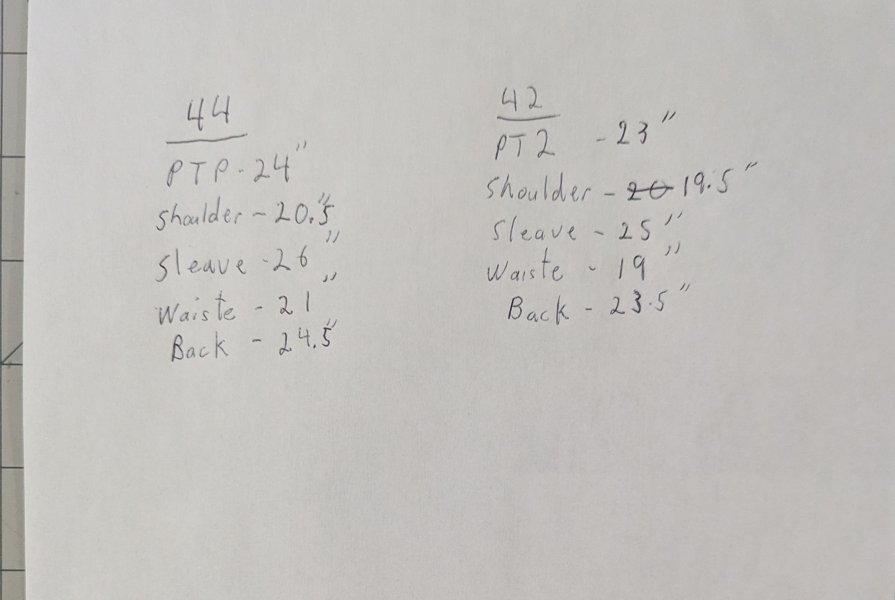 44
PTP - 24"
Shoulder - 20.5"
Sleave - 26"
Waiste - 21"
Back - 24.5"
42
PT2 - 23"
Shoulder - 20 19.5"
Sleave - 25"
Waiste - 19"
Back - 23.5"